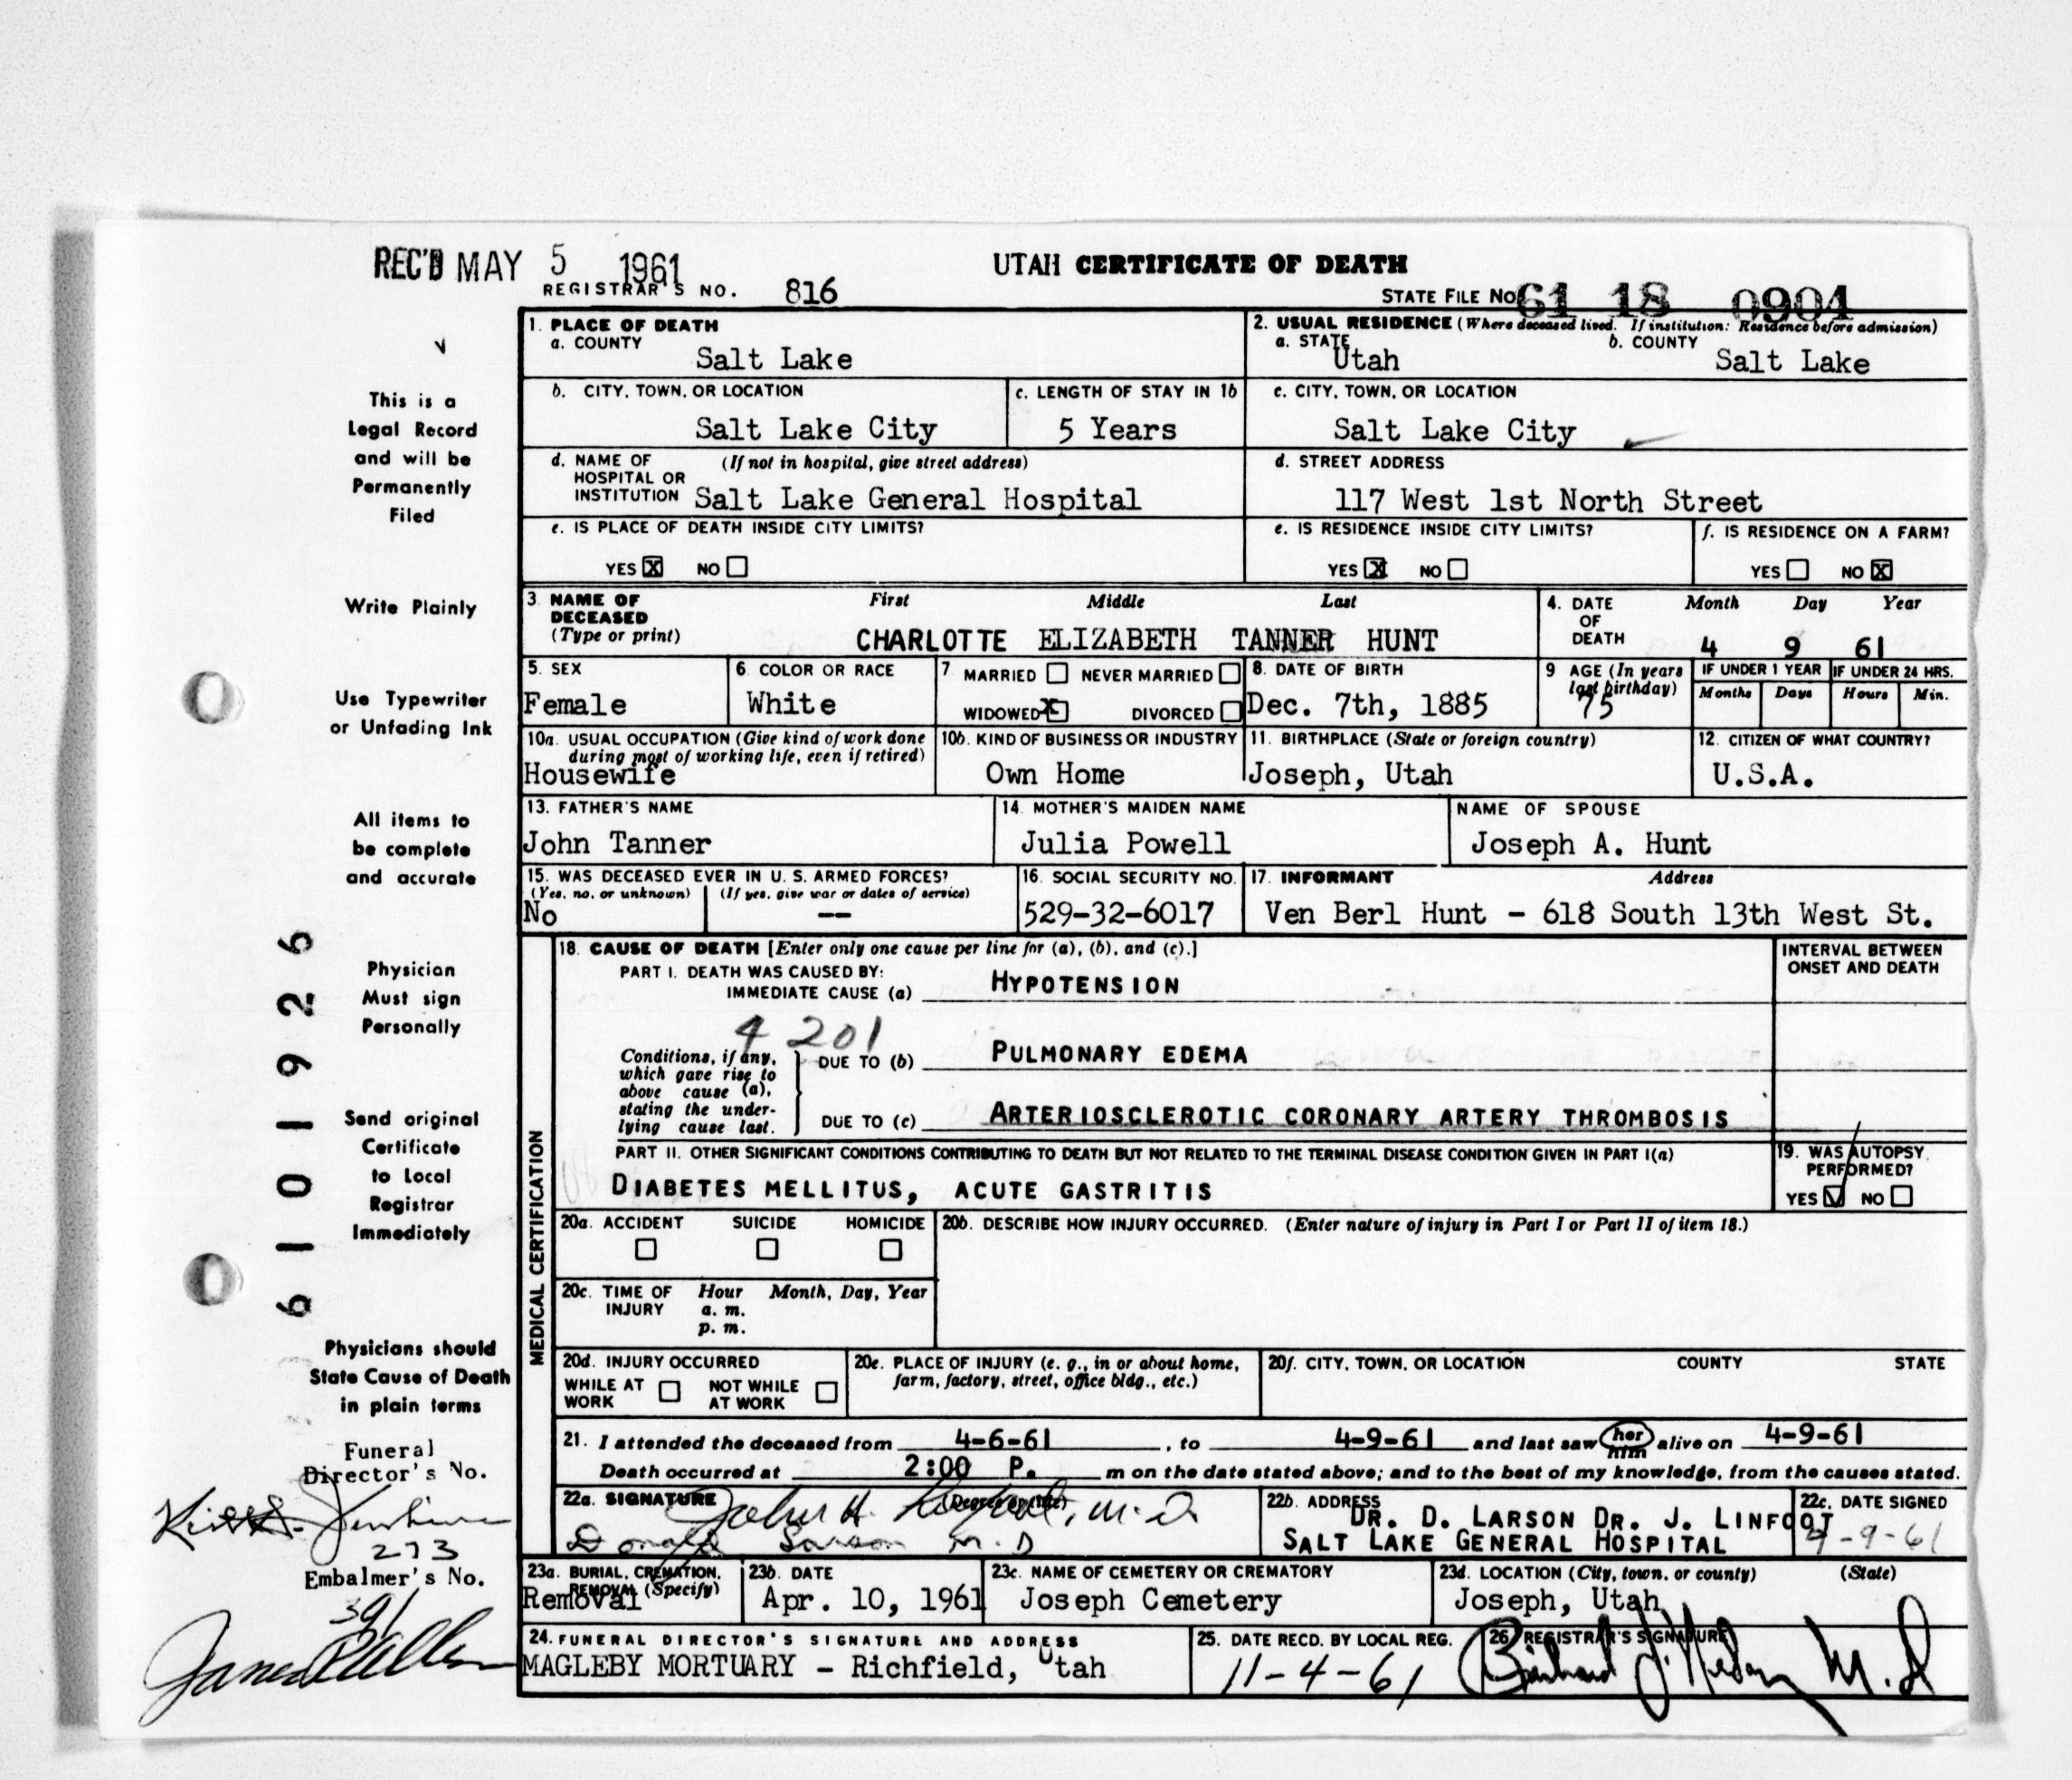 REC'D MAY 5 1961
UTAH CERTIFICATE OF DEATH
REGISTRAR'S NO. 816
STATE FILE NO. 61 18 0904
This is a
Legal Record
and will be
Permanently
Filed
Write Plainly
Use Typewriter
or Unfading Ink
All items to
be complete
and accurate
Physician
Must sign
Personally
Send original
Certificate
to Local
Registrar
Immediately
Physicians should
State Cause of Death
in plain terms
Funeral
Director's No.
273
Embalmer's No.
391
6101926
1. PLACE OF DEATH
a. COUNTY
Salt Lake
2. USUAL RESIDENCE (Where deceased lived. If institution: Residence before admission)
a. STATE b. COUNTY
Utah Salt Lake
b. CITY, TOWN, OR LOCATION
Salt Lake City
c. LENGTH OF STAY IN 1b
5 Years
c. CITY, TOWN, OR LOCATION
Salt Lake City
d. NAME OF (If not in hospital, give street address)
HOSPITAL OR
INSTITUTION Salt Lake General Hospital
d. STREET ADDRESS
117 West 1st North Street
e. IS PLACE OF DEATH INSIDE CITY LIMITS?
YES X NO
e. IS RESIDENCE INSIDE CITY LIMITS?
YES X NO
f. IS RESIDENCE ON A FARM?
YES NO X
3. NAME OF First Middle Last
DECEASED
(Type or print) CHARLOTTE ELIZABETH TANNER HUNT
4. DATE Month Day Year
OF
DEATH 4 9 61
5. SEX
Female
6. COLOR OR RACE
White
7 MARRIED NEVER MARRIED
WIDOWED X DIVORCED
8. DATE OF BIRTH
Dec. 7th, 1885
9 AGE (In years
last birthday)
75
IF UNDER 1 YEAR IF UNDER 24 HRS.
Months Days Hours Min.
10a. USUAL OCCUPATION (Give kind of work done
during most of working life, even if retired)
Housewife
10b. KIND OF BUSINESS OR INDUSTRY
Own Home
11. BIRTHPLACE (State or foreign country)
Joseph, Utah
12. CITIZEN OF WHAT COUNTRY?
U.S.A.
13. FATHER'S NAME
John Tanner
14. MOTHER'S MAIDEN NAME
Julia Powell
NAME OF SPOUSE
Joseph A. Hunt
15. WAS DECEASED EVER IN U. S. ARMED FORCES?
(Yes, no, or unknown) (If yes, give war or dates of service)
No --
16. SOCIAL SECURITY NO.
529-32-6017
17. INFORMANT Address
Ven Berl Hunt - 618 South 13th West St.
MEDICAL CERTIFICATION
18. CAUSE OF DEATH [Enter only one cause per line for (a), (b), and (c).]
INTERVAL BETWEEN
ONSET AND DEATH
PART I. DEATH WAS CAUSED BY:
IMMEDIATE CAUSE (a) HYPOTENSION
4201
Conditions, if any,
which gave rise to
above cause (a),
stating the under-
lying cause last.
DUE TO (b) PULMONARY EDEMA
DUE TO (c) ARTERIOSCLEROTIC CORONARY ARTERY THROMBOSIS
PART II. OTHER SIGNIFICANT CONDITIONS CONTRIBUTING TO DEATH BUT NOT RELATED TO THE TERMINAL DISEASE CONDITION GIVEN IN PART I(a)
DIABETES MELLITUS, ACUTE GASTRITIS
19. WAS AUTOPSY
PERFORMED?
YES NO
20a. ACCIDENT SUICIDE HOMICIDE
20b. DESCRIBE HOW INJURY OCCURRED. (Enter nature of injury in Part I or Part II of item 18.)
20c. TIME OF Hour Month, Day, Year
INJURY a. m.
p. m.
20d. INJURY OCCURRED
WHILE AT NOT WHILE
WORK AT WORK
20e. PLACE OF INJURY (e. g., in or about home,
farm, factory, street, office bldg., etc.)
20f. CITY, TOWN, OR LOCATION COUNTY STATE
21. I attended the deceased from 4-6-61, to 4-9-61 and last saw her him alive on 4-9-61
Death occurred at 2:00 P. m on the date stated above; and to the best of my knowledge, from the causes stated.
22a. SIGNATURE (Degree or title)
John H. M.D
Donald Larson M.D
22b. ADDRESS
DR. D. LARSON DR. J. LINFOOT
SALT LAKE GENERAL HOSPITAL
22c. DATE SIGNED
4-9-61
23a. BURIAL, CREMATION,
REMOVAL (Specify)
Removal
23b. DATE
Apr. 10, 1961
23c. NAME OF CEMETERY OR CREMATORY
Joseph Cemetery
23d. LOCATION (City, town, or county) (State)
Joseph, Utah
24. FUNERAL DIRECTOR'S SIGNATURE AND ADDRESS
MAGLEBY MORTUARY - Richfield, Utah
25. DATE RECD. BY LOCAL REG.
11-4-61
26. REGISTRAR'S SIGNATURE
M.D